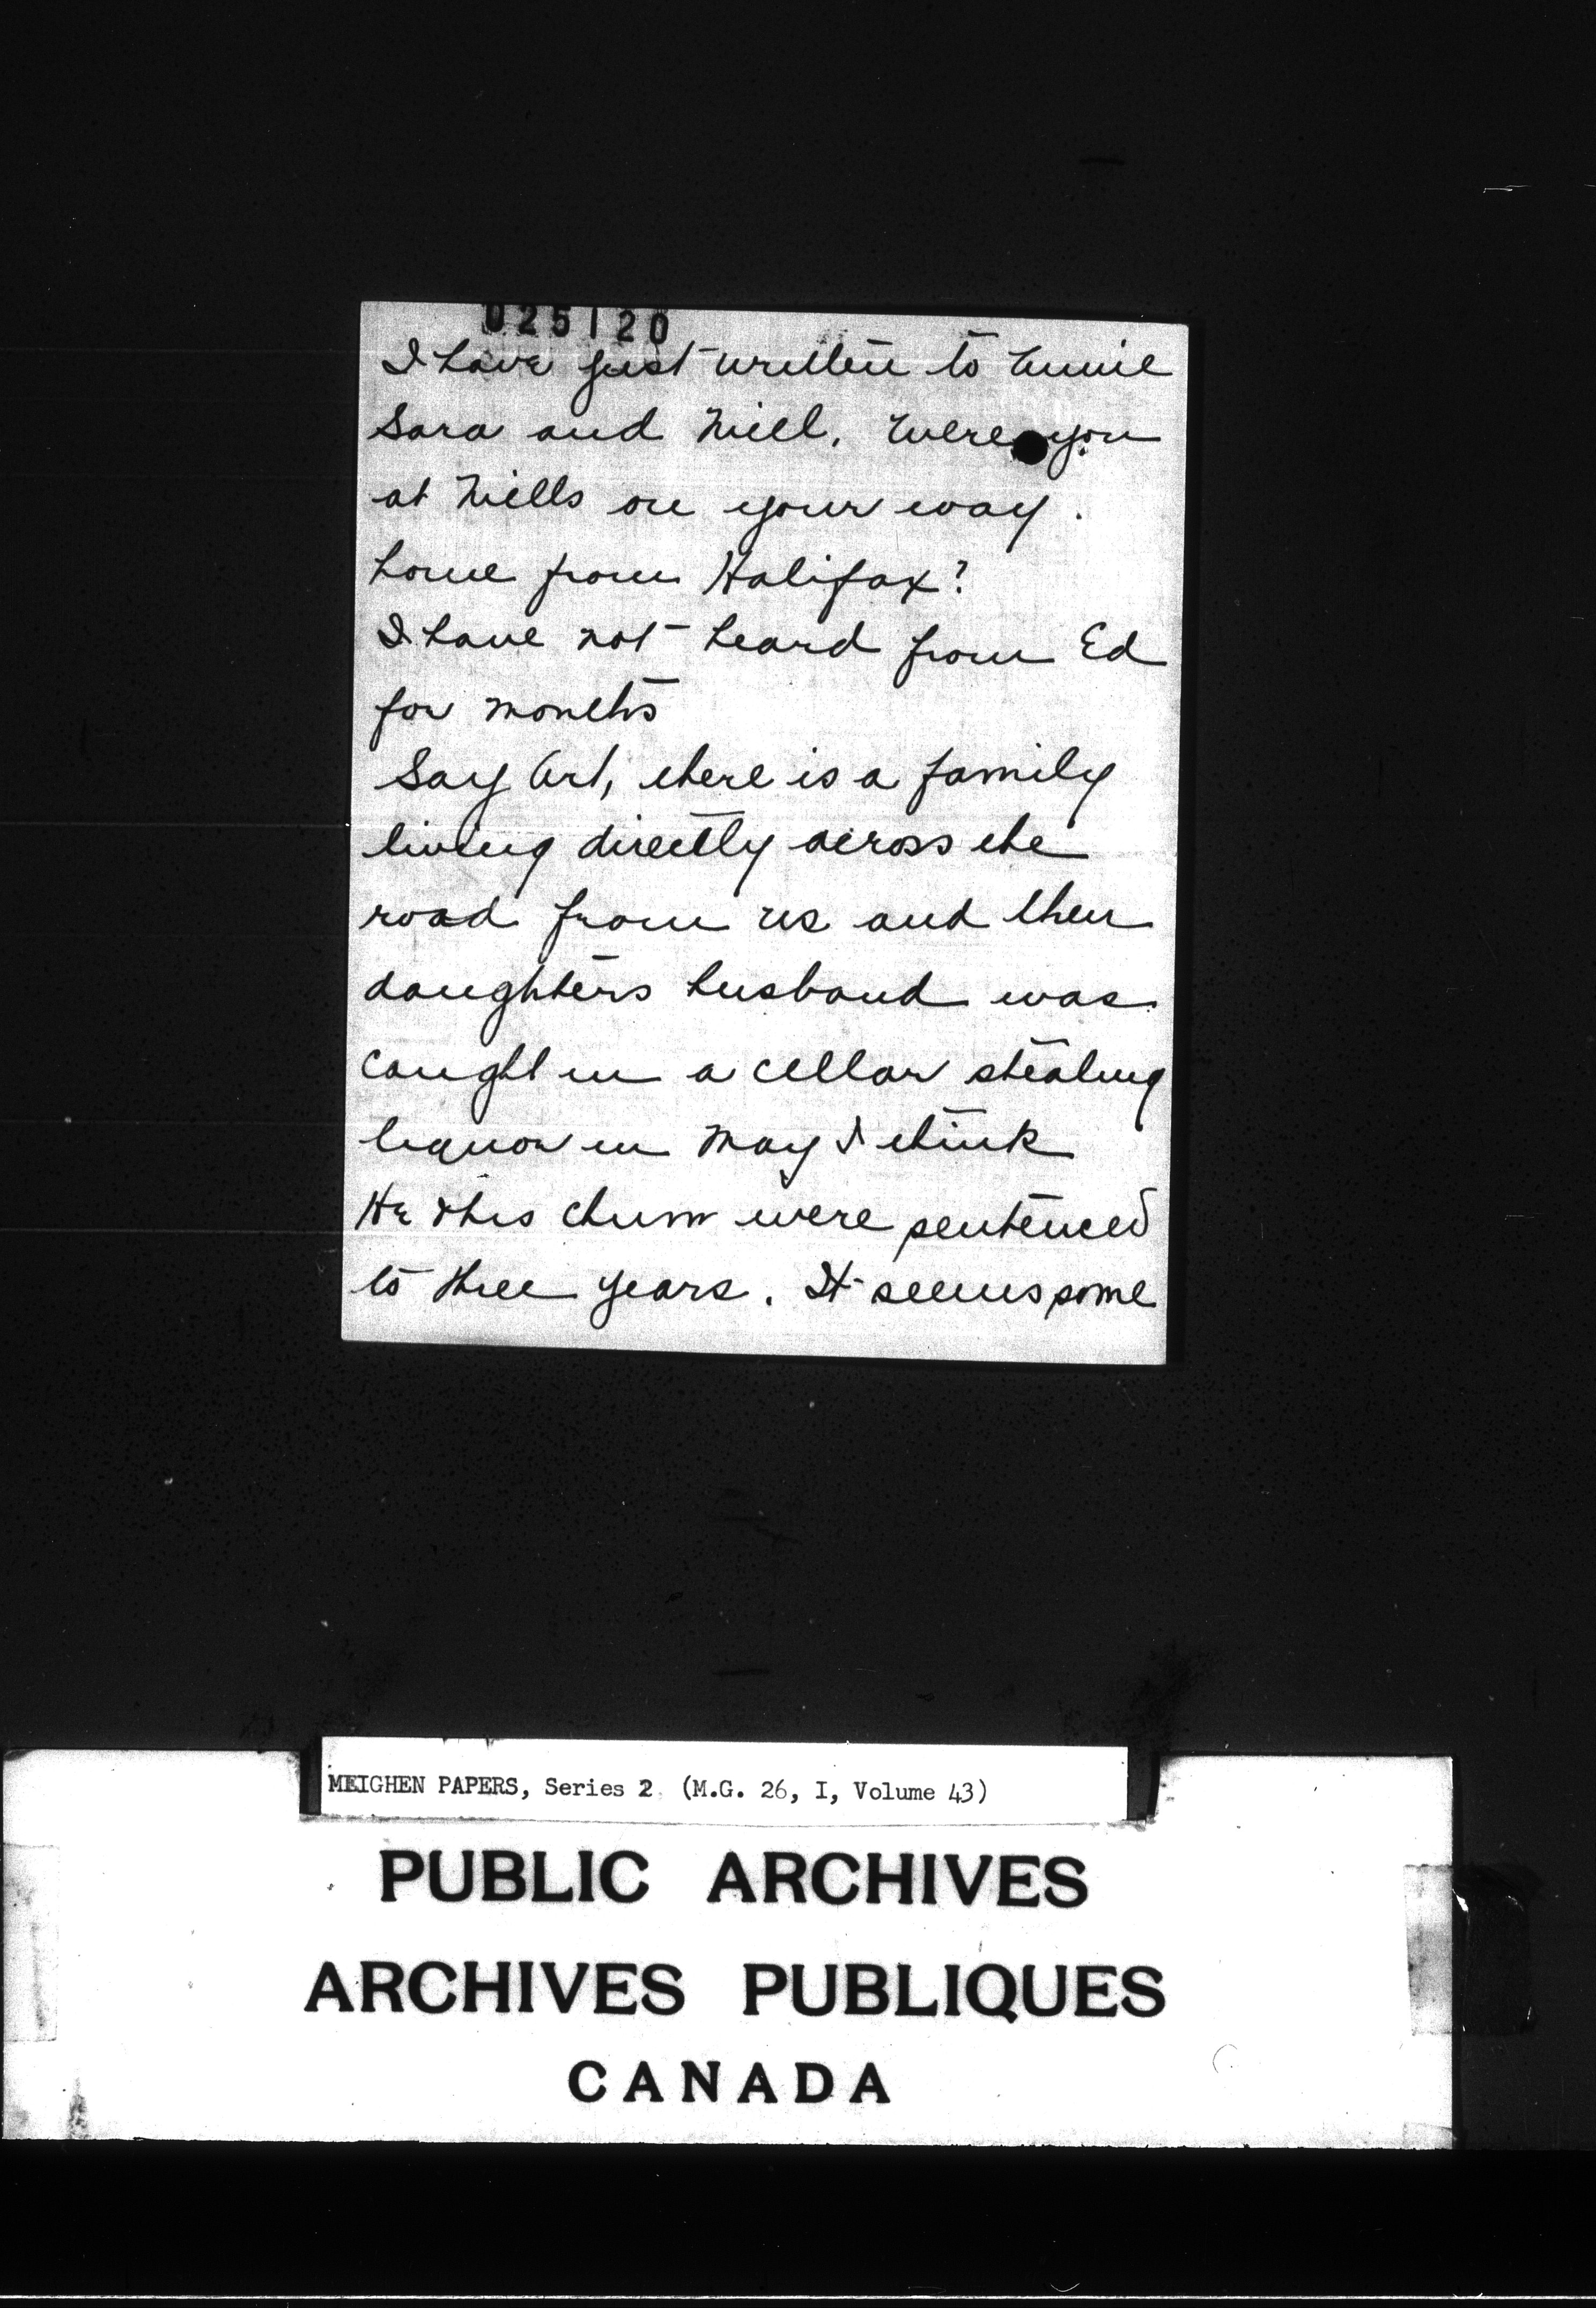 025120
I have just written to
Sara and Mill. Were you
at Mills on your way
home from Halifax?
I have not heard from Ed
for months
Say Art, there is a family
living directly across the
road from us and their
daughters husband was
caught in a cellar stealing
liquor in May I think
He & his chum were sentenced
to three years. It seems some
MEIGHEN PAPERS, Series 2 (M.G. 26, I, Volume 43)
PUBLIC ARCHIVES
ARCHIVES PUBLIQUES
CANADA